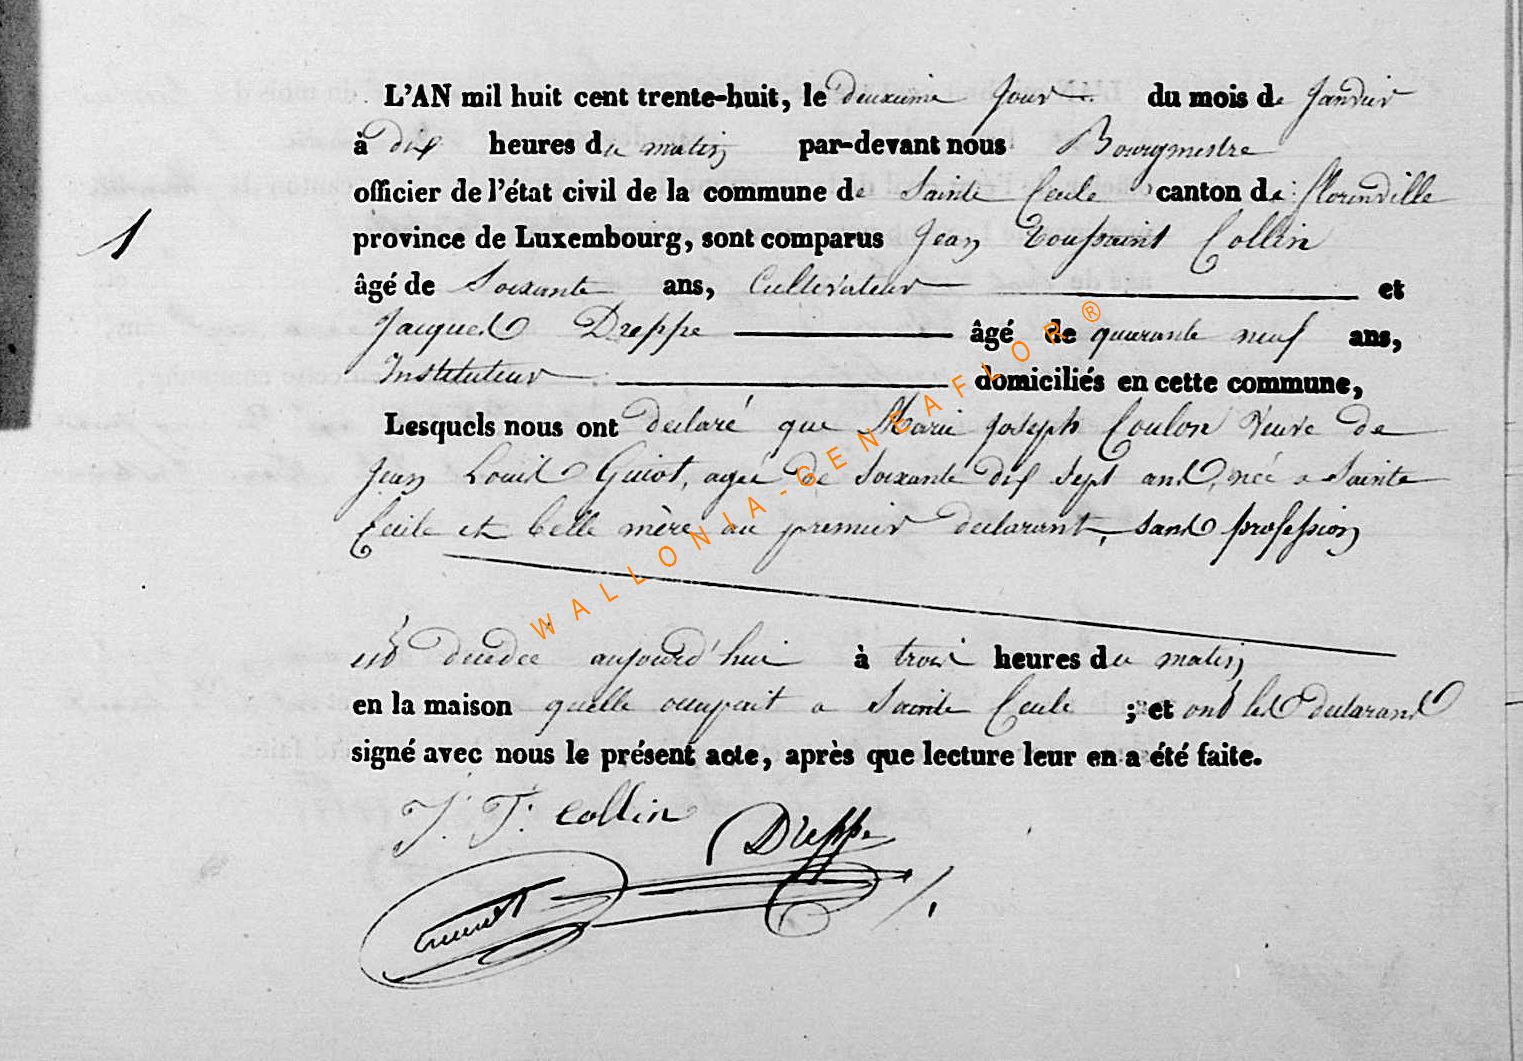 L'AN mil huit cent trente-huit, le deuxieme Jour du mois de Janvier
à dix heures du matin par-devant nous Bourgmestre
officier de l'état civil de la commune de Sainte Cecile, canton de Florenville
1
province de Luxembourg, sont comparus Jean Toussaint Collin
âgé de Soixante ans, Cultivateur et
Jacques Dreppe âgé de quarante neuf ans,
Instituteur domiciliés en cette commune,
Lesquels nous ont declaré que Marie Joseph Coulon Veuve de
Jean Louis Guiot, agée de Soixante dix Sept ans, née a Sainte
Cecile et belle mère au premier declarant, sans profession
est decedée aujourd'hui à trois heures du matin
en la maison quelle occupait a Sainte Cecile ; et ont les declarans
signé avec nous le présent acte, après que lecture leur en a été faite.
J. T. Collin
Dreppe
WALLONIA-GENEAFLOR®